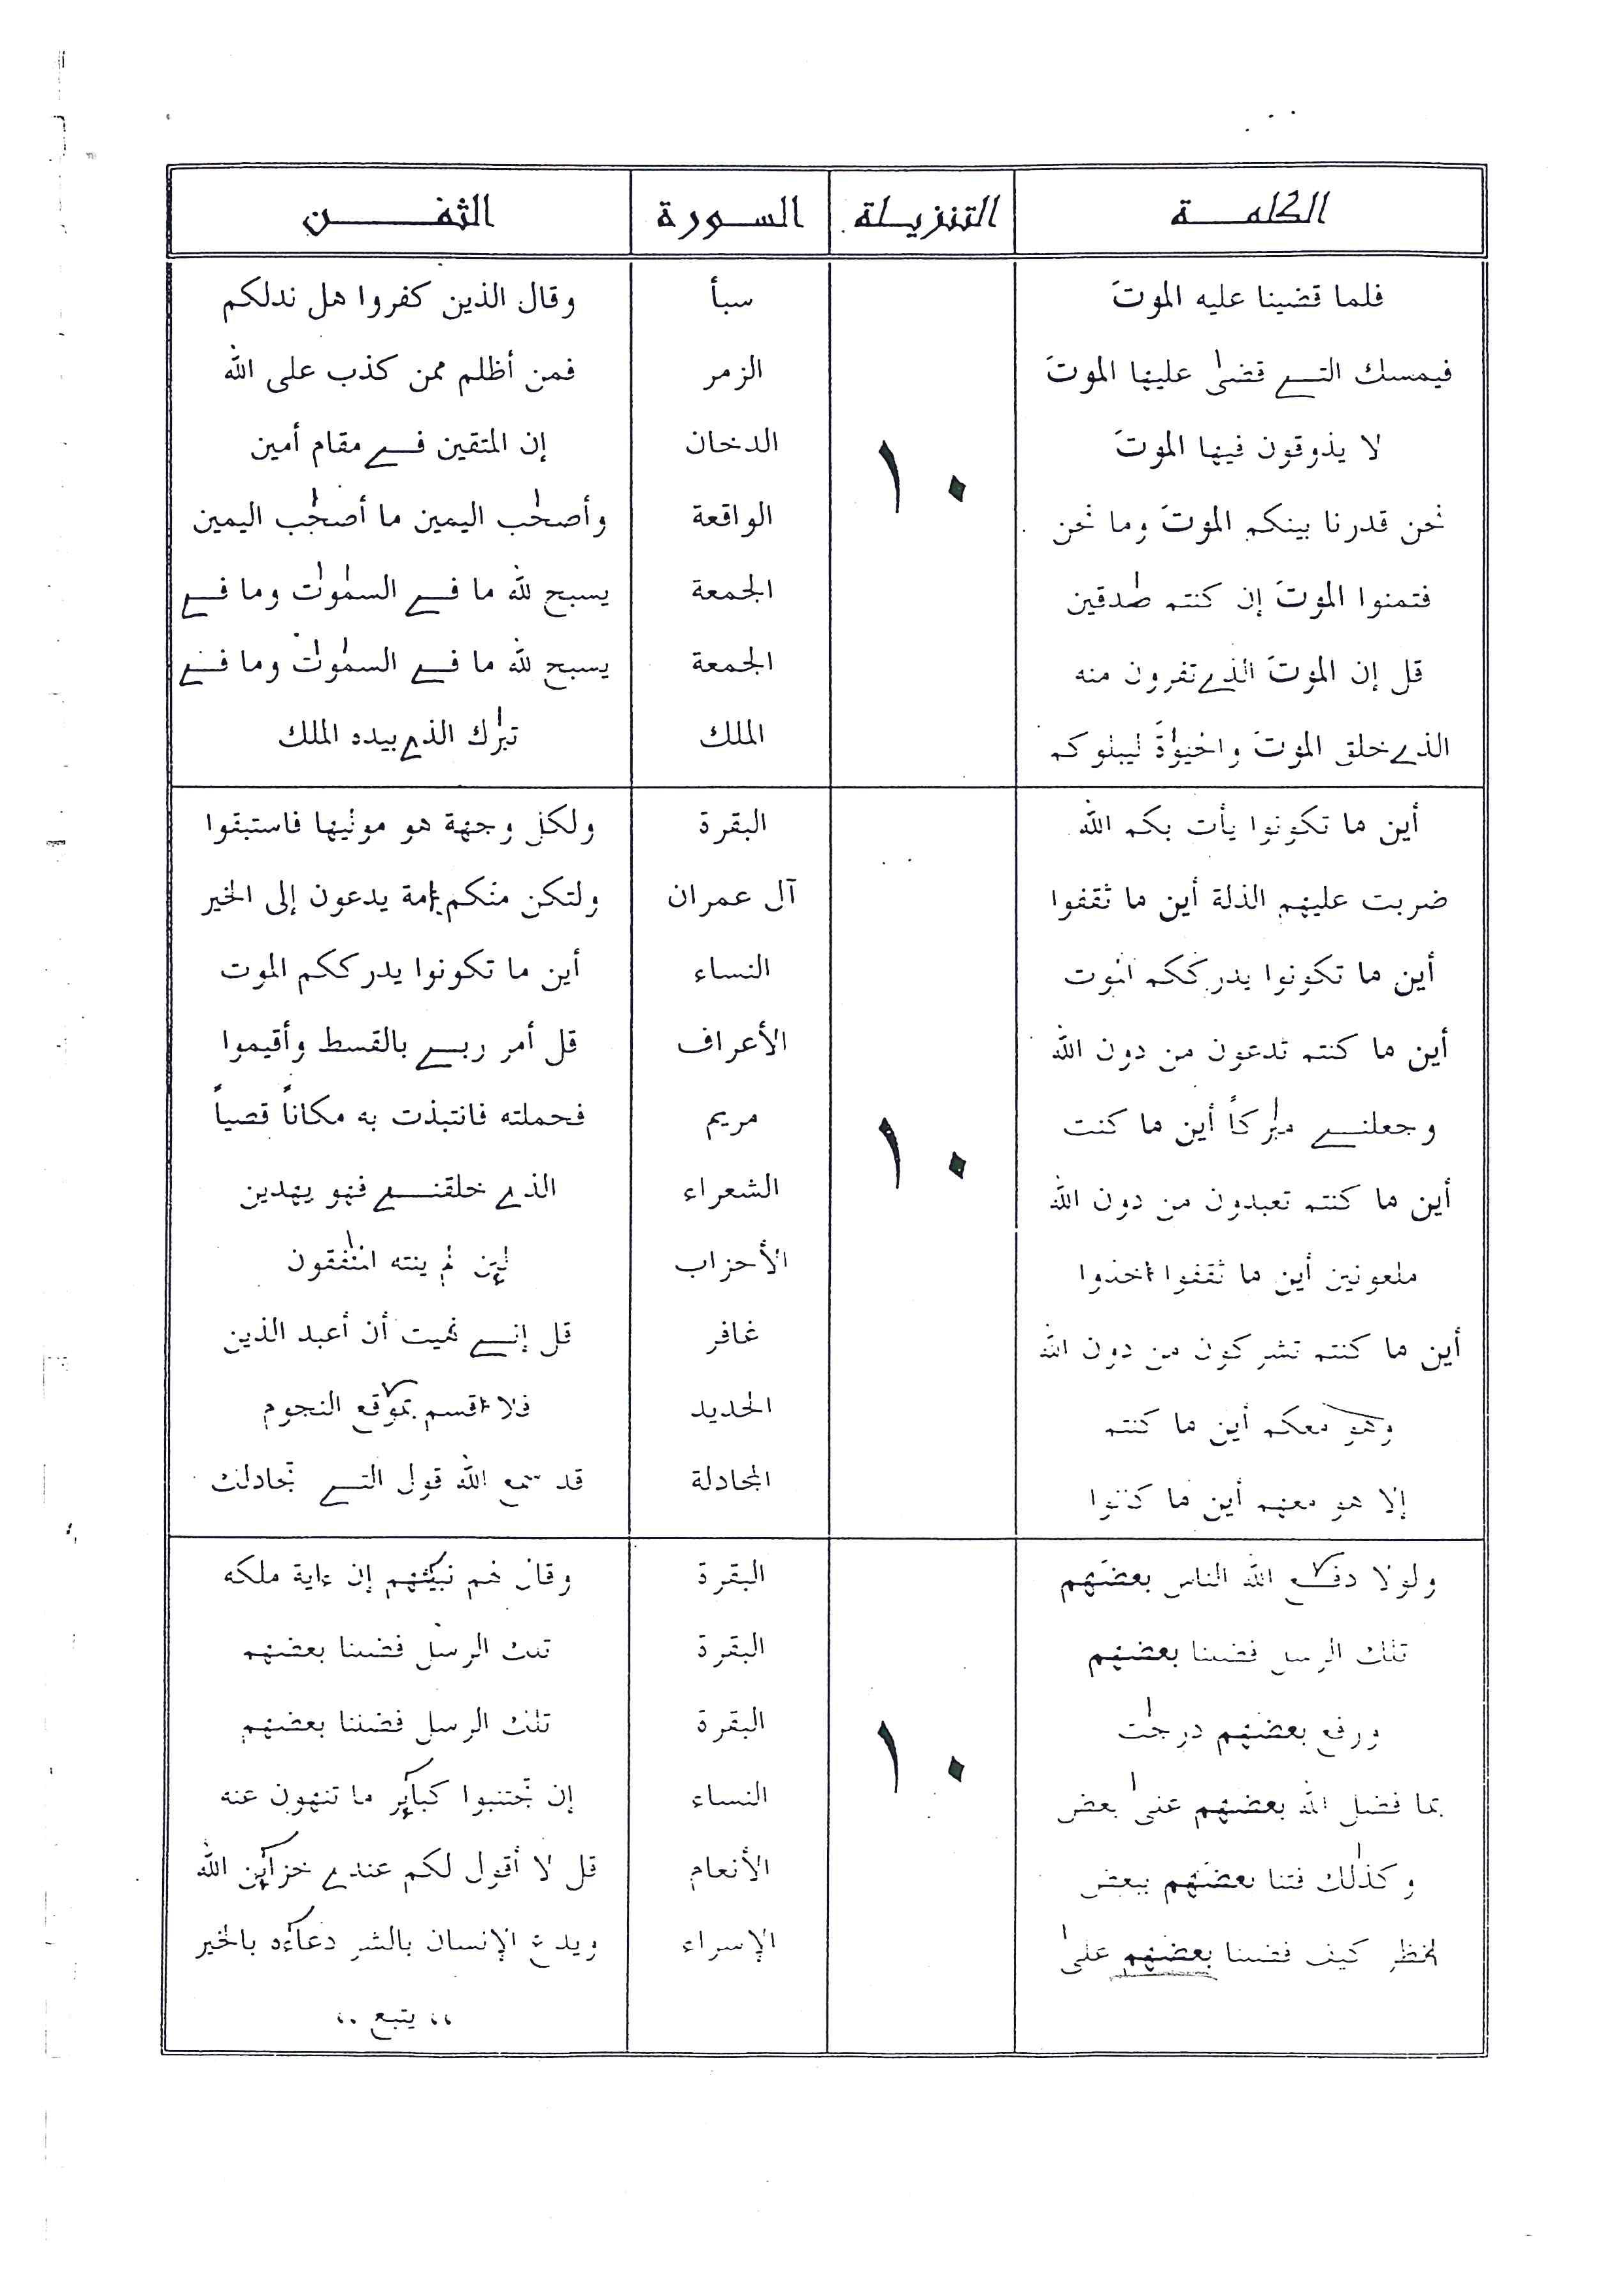 الكلمة التنزيلة السورة الثمن
فلما قضينا عليه الموتَ سبأ وقال الذين كفروا هل ندلكم
فيمسك التي قضىٰ عليها الموتَ الزمر فمن أظلم ممن كذب على الله
لا يذوقون فيها الموتَ الدخان إن المتقين في مقام أمين
١٠
نحن قدرنا بينكم الموتَ وما نحن الواقعة وأصحٰب اليمين ما أصحٰب اليمين
فتمنوا الموتَ إن كنتم صٰدقين الجمعة يسبح لله ما في السمٰوٰت وما في
قل إن الموتَ الذي تفرون منه الجمعة يسبح لله ما في السمٰوٰت وما في
الذي خلق الموتَ والحيوٰةَ ليبلوكم الملك تبٰرك الذي بيده الملك
أين ما تكونوا يأت بكم الله البقرة ولكل وجهة هو موليها فاستبقوا
ضربت عليهم الذلة أين ما ثقفوا آل عمران ولتكن منكم أمة يدعون إلى الخير
أين ما تكونوا يدرككم الموت النساء أين ما تكونوا يدرككم الموت
أين ما كنتم تدعون من دون الله الأعراف قل أمر ربي بالقسط وأقيموا
وجعلني مبٰركاً أين ما كنت مريم فحملته فانتبذت به مكاناً قصياً
١٠
أين ما كنتم تعبدون من دون الله الشعراء الذي خلقني فهو يهدين
ملعونين أين ما ثقفوا أخذوا الأحزاب لئن لم ينته المنٰفقون
أين ما كنتم تشركون من دون الله غافر قل إني نهيت أن أعبد الذين
وهو معكم أين ما كنتم الحديد فلا أقسم بموٰقع النجوم
إلا هو معهم أين ما كانوا المجادلة قد سمع الله قول التي تجادلك
ولولا دفٰع الله الناس بعضهم البقرة وقال لهم نبيئهم إن ءاية ملكه
تلك الرسل فضلنا بعضهم البقرة تلك الرسل فضلنا بعضهم
ورفع بعضهم درجٰت البقرة تلك الرسل فضلنا بعضهم
١٠
بما فضل الله بعضهم علىٰ بعض النساء إن تجتنبوا كبآئر ما تنهون عنه
وكذٰلك فتنا بعضهم ببعض الأنعام قل لا أقول لكم عندي خزآئن الله
كيف فضلنا بعضهم علىٰ الإسراء ويدع الإنسان بالشر دعآءه بالخير
،، يتبع ،،